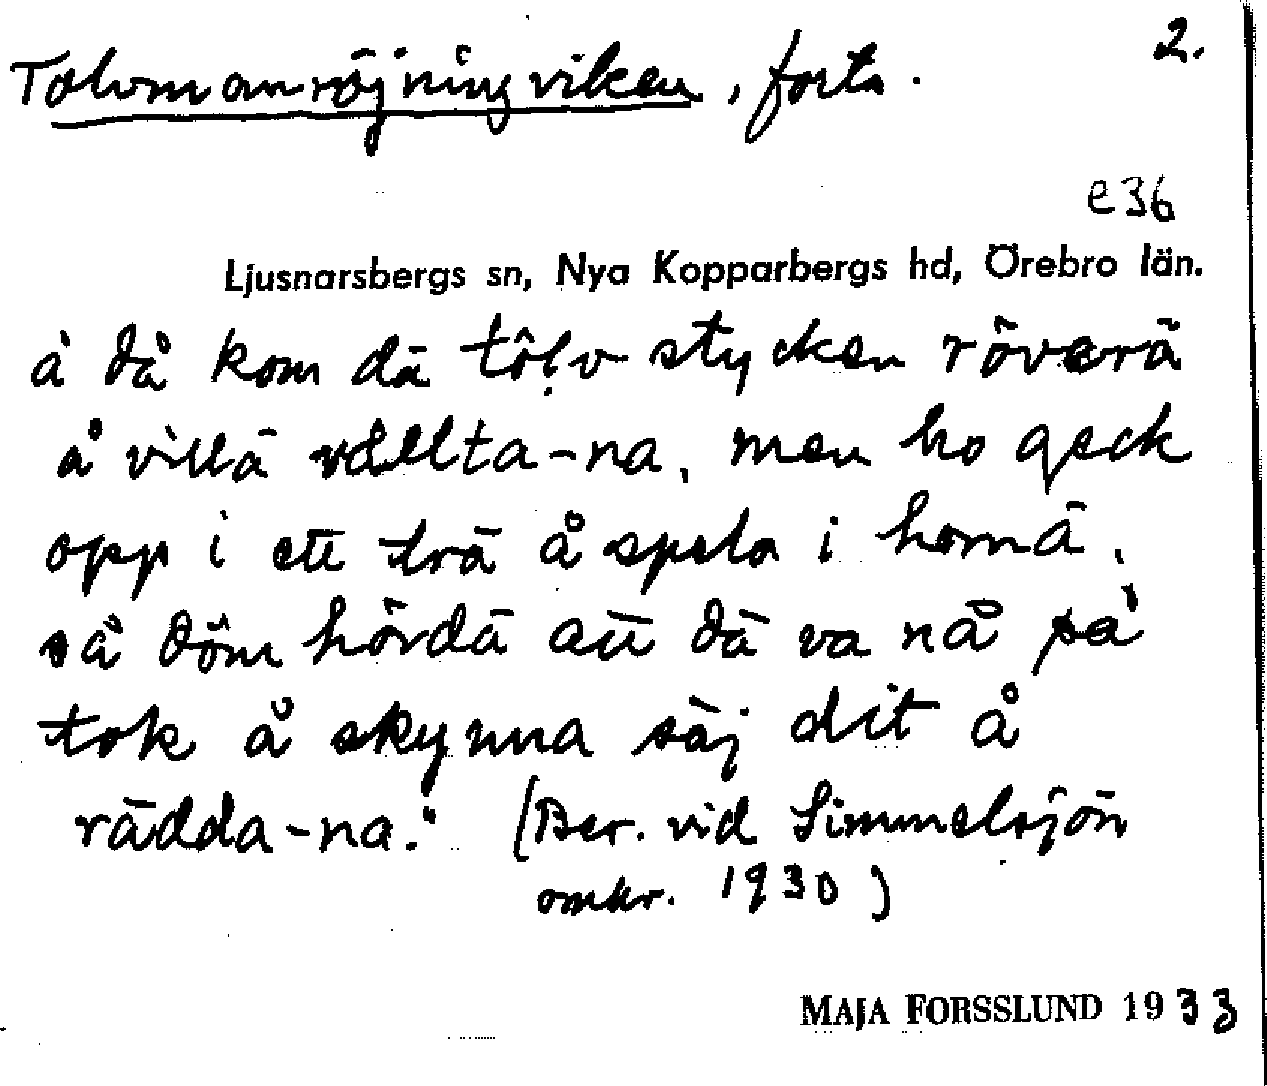 2.
Tolvmanröjningviken, forts.
e36
Ljusnarsbergs sn, Nya Kopparbergs hd, Örebro län.
å då kom dä tôlv stycken rövarä
å villä vållta-na, men ho geck
opp i ett trä å spela i hornä,
så dôm hördä att dä va nå på
tok å skynna säj dit å
rädda-na." (Ber. vid Simmelsjön
omkr. 1930)
MAJA FORSSLUND 1933